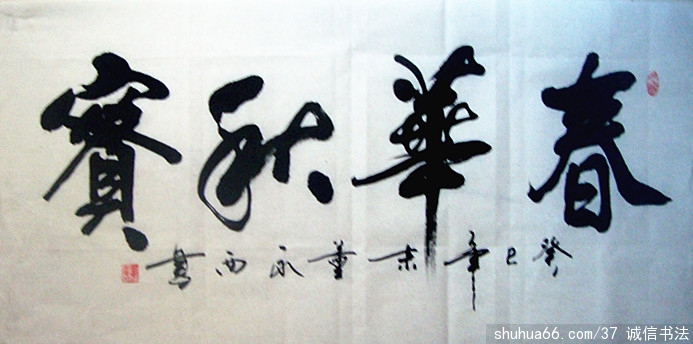 春華秋實
癸巳年末董永西書
shuhua66.com/37 诚信书法